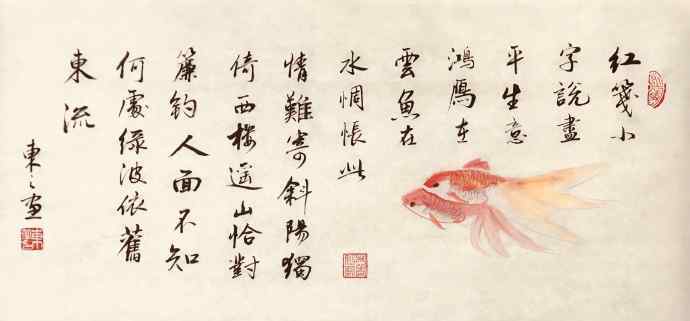 紅箋小
字說盡
平生意
鴻鴈在
雲魚在
水惆悵此
情難寄斜陽獨
倚西樓遥山恰對
簾鈎人面不知
何處綠波依舊
東流
東之畫